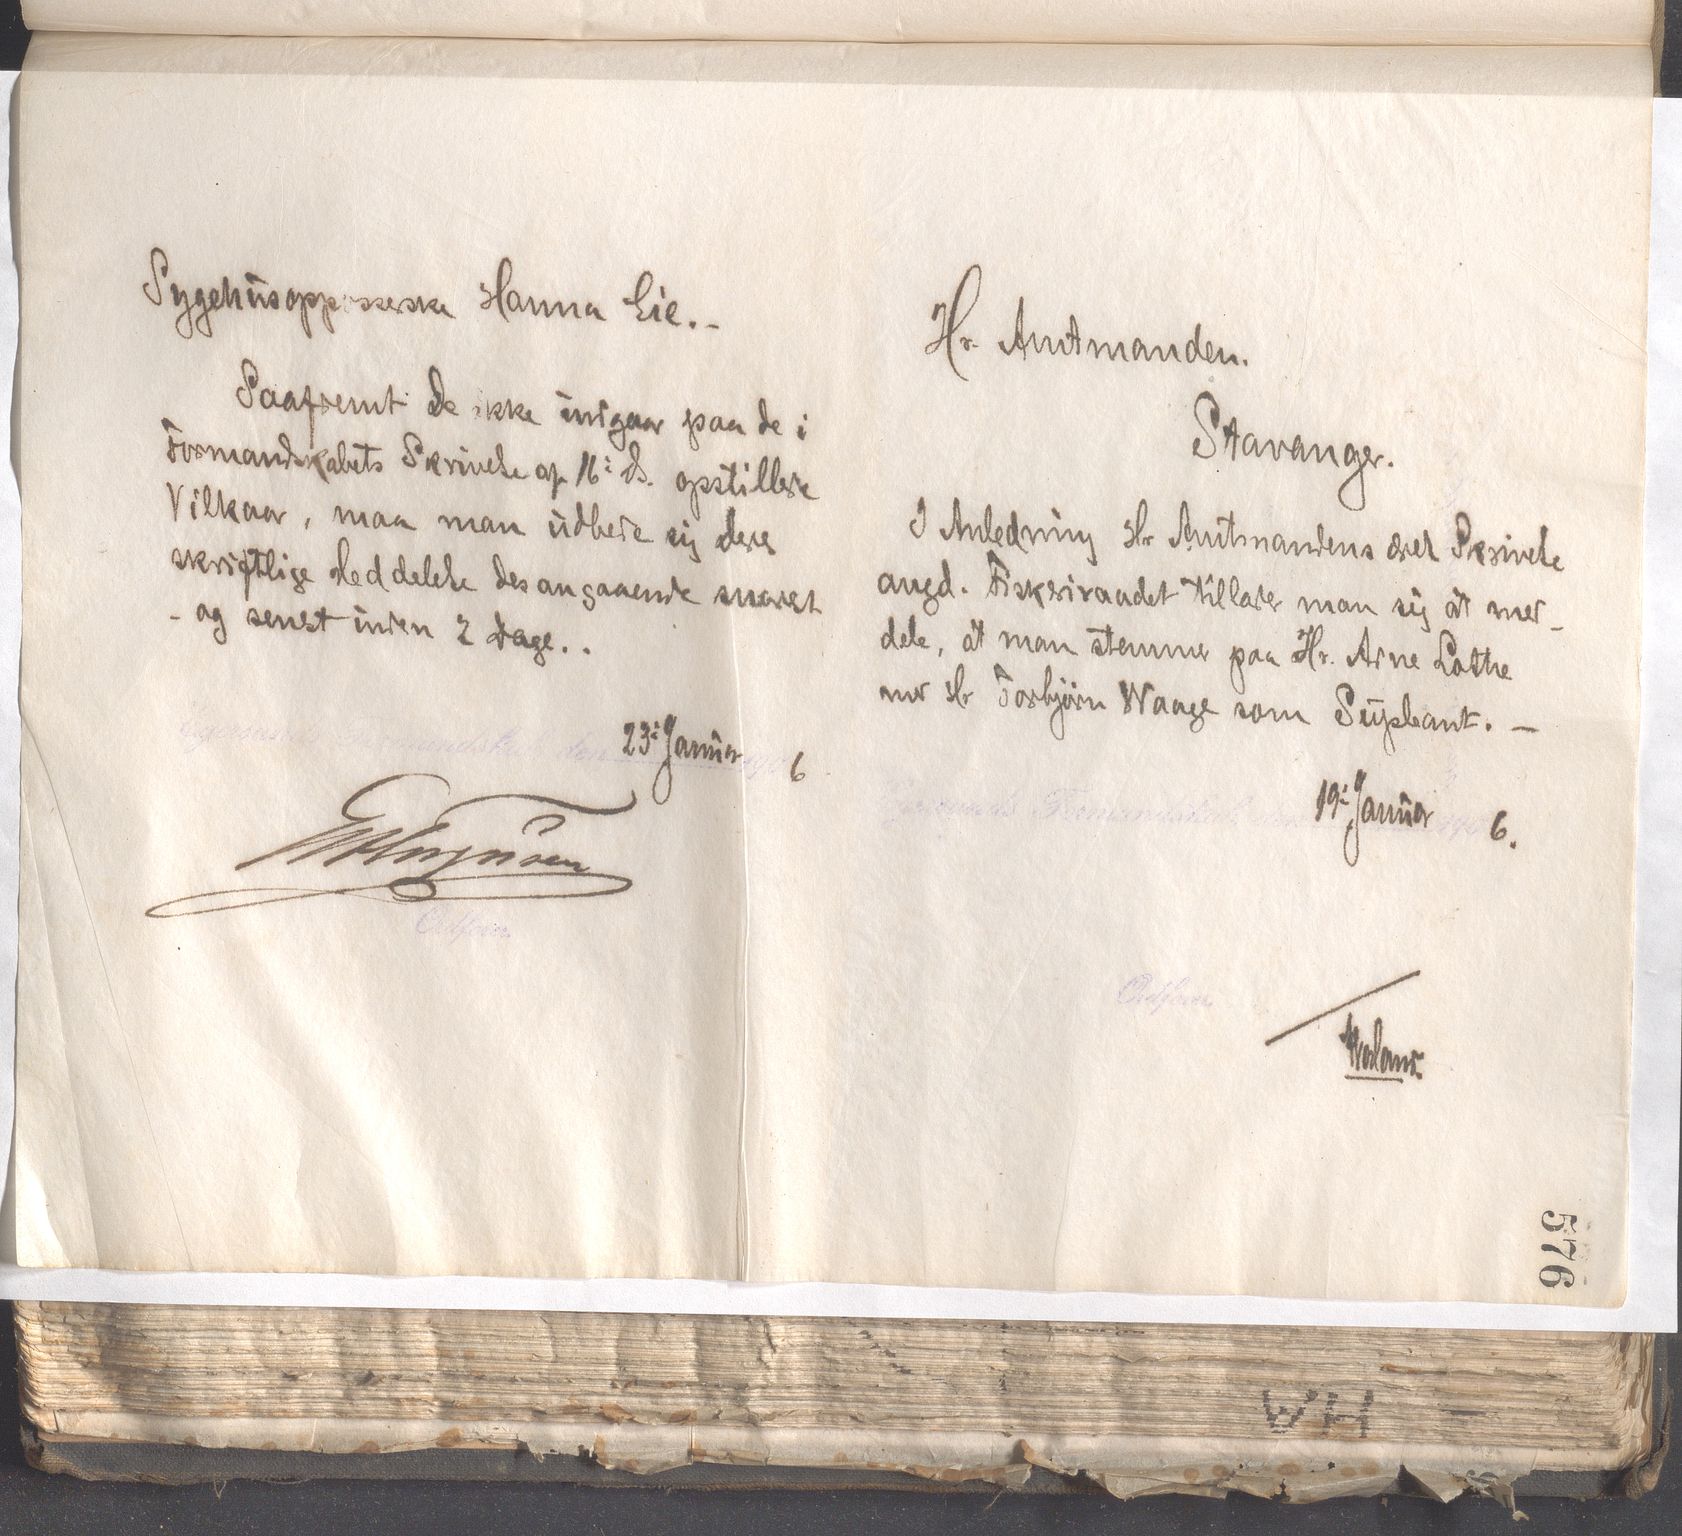 Sygehusoppasserske Hanna Eie. -
Saafremt De ikke indgaar paa de i
Formandskabets Skrivelse af 16: ds. opstillede
Vilkaar, maa man udbede sig deres
skriftlige Meddelelse desangaaende snarest
- og senest inden 2 Dage. .
Egersunds Formandskab den 23: Januar 1906
Ordfører
Hr. Amtmanden.
Stavanger.
I Anledning Hr Amtmandens æret Skrivelse
angd. Fiskeriraadet tillader man sig at med-
dele, at man stemmer paa Hr. Arne Lothe
med Hr Torbjørn Waage som Supleant. -
Egersunds Formandskab den 19: Januar 1906.
Ordfører
576